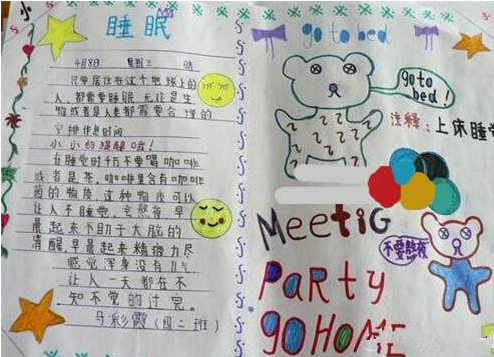 小
睡眠
4月8日 星期三 晴
只要居住在这个地球上的
人,都需要睡眠,无论是生
物或者是人类都需要合理的
安排作息时间
小小的提醒哦!
在睡觉时千万不要喝咖啡
或者是茶,咖啡里含有咖啡
因的物质,这种物质可以
让人不睡觉,会熬夜,早
晨起来不助于大脑的
清醒,早晨起来精疲力尽
感觉浑身没有力气
让人一天都在不
知不觉的过完。
马彩霞(四二班)
go to bed
go to
bed!
注释:上床睡觉
MeetiG
不要熬夜
PaRty
gO HOME